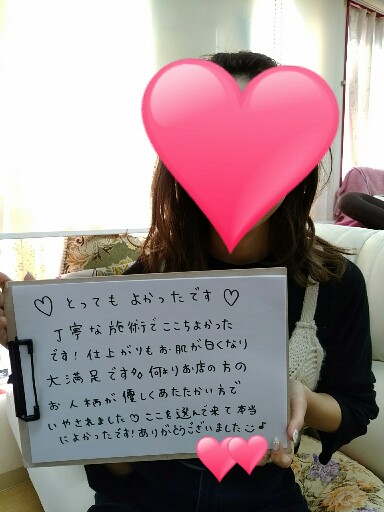 ♡ とっても よかったです ♡
丁寧な施術でここちよかった
です! 仕上がりもお肌が白くなり
大満足です。何よりお店の方の
お人柄が優しくあたたかい方で
いやされました♡ここを選んで来て本当
によかったです!ありがとうございました